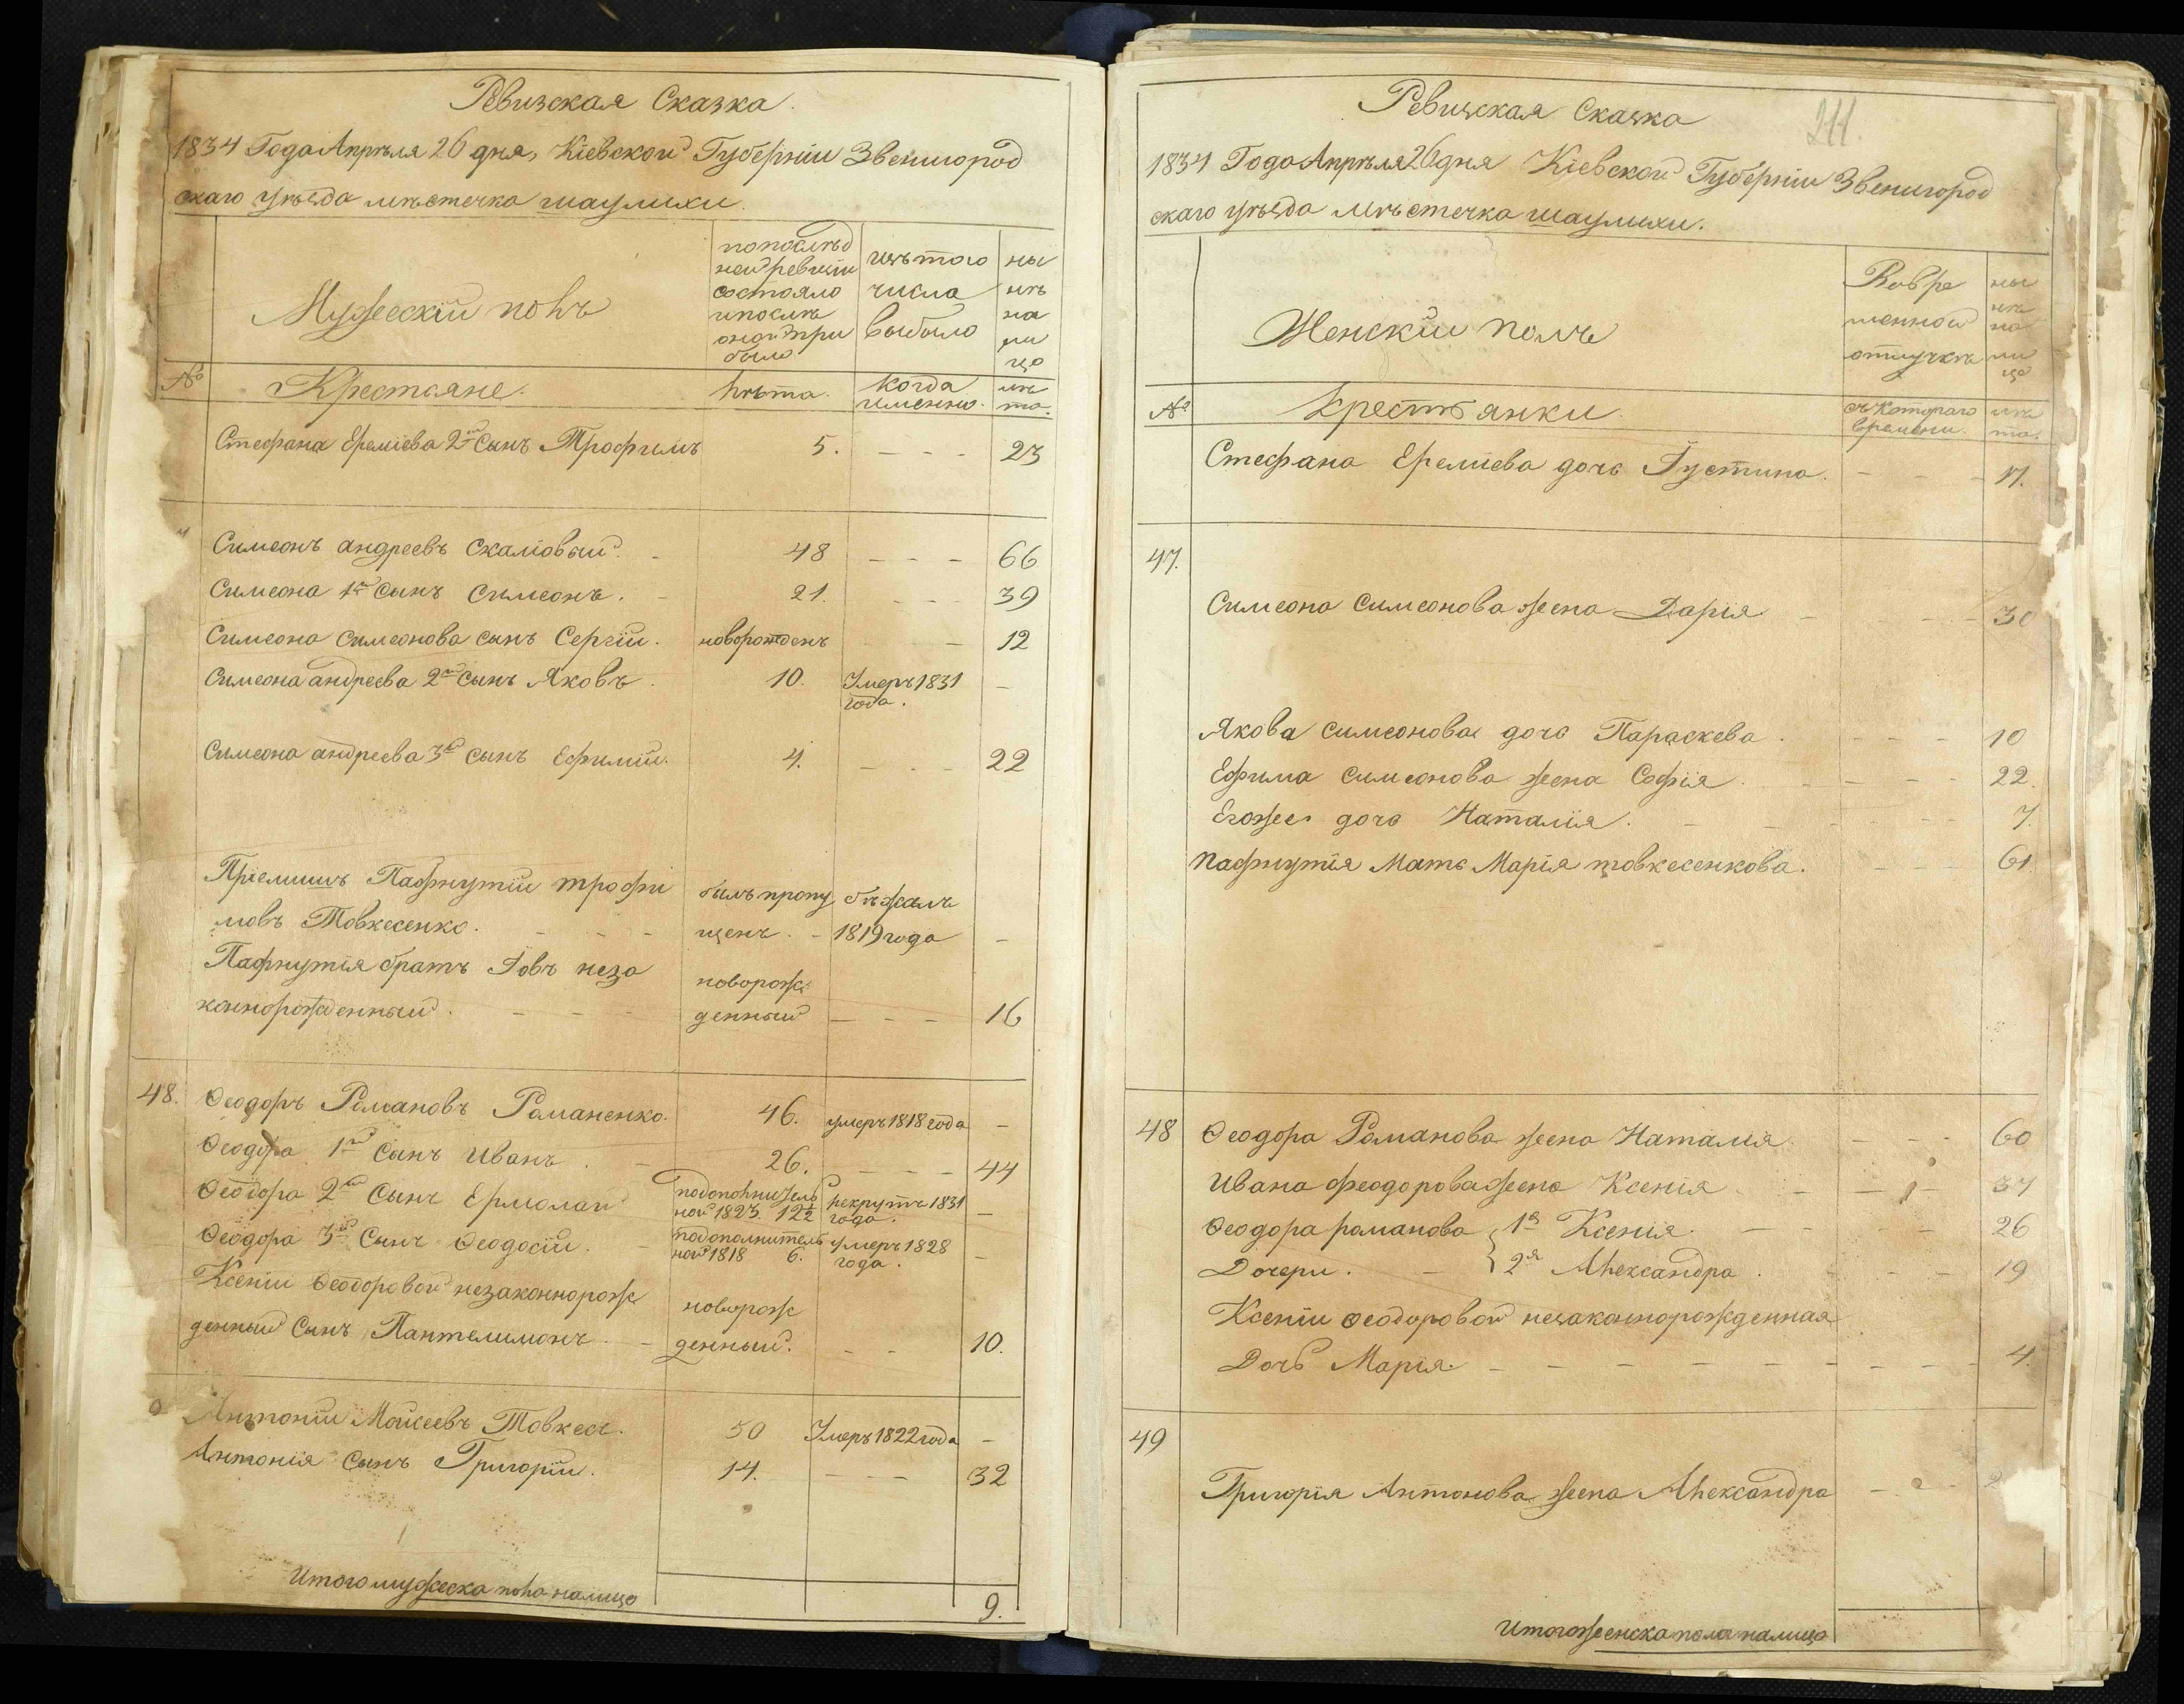 Ревизская Сказка.
1834 Года Апрѣля 26 дня, Кіевской Губерніи Звенигород
скаго уѣзда мѣстечка шаулихи.
Мужескій полъ
по послѣд
ней ревизіи
состояло
и послѣ
оной при
было
изъ того
числа
выбыло
ны
нѣ
на
ли
цо
№
Крестьяне.
лѣта.
когда
именно.
лѣ
та.
Стефана Ереміева 2й сынъ Трофимъ 5. - - - 23
Симеонъ андреевъ скаловый. - 48 - - - 66
Симеона 1й сынъ симеонъ. - 21. - - 39
Симеона симеонова сынъ Сергій. новорожденъ - 12
Симеона андреева 2й сынъ Яковъ. 10. Умеръ 1831 -
года.
Симеона андреева 3й сынъ Ефимій. 4. - - - 22
Пріемышъ Пафнутій трофи былъ пропу бѣжалъ
мовъ Товкесенко. - - - щенъ. - 1819 года -
Пафнутія братъ Іовъ неза новорож
коннорожденный. - - - денный - - - 16
48. Ѳеодоръ Романовъ Романенко. 46. умеръ 1818 года -
Ѳеодора 1й сынъ Иванъ. - 26. - - - 44
Ѳеодора 2й сынъ Ермолай подополнитель рекрутъ 1831 -
ной 1823. 12½ года.
Ѳеодора 3й сынъ Ѳеодосій. - подополнитель умеръ 1828 -
ной 1818 6. года.
Ксеніи Ѳеодоровой незаконнорож новорож
денный сынъ Пантелимонъ. - денный. - - 10.
Антоній Моисеевъ Товкесъ. 50 Умеръ 1822 года -
Антонія сынъ Григорій. 14. - - - 32
Итого мужеска пола налицо 9.
Ревизская Сказка
211.
1834 Года Апрѣля 26 дня Кіевской Губерніи Звенигород
скаго уѣзда мѣстечка шаулихи.
Женскій полъ
Во вре
менной
отлучкѣ
ны
нѣ
на
ли
цо
№
Крестьянки.
съ котораго
времени.
лѣ
та.
Стефана Ереміева дочь Іустина. - - - 17.
47.
Симеона симеонова жена Дарія. - - - 30
Якова симеонова дочь Параскева. - - - 10
Ефима симеонова жена Софія. - - - 22.
Егоже дочь Наталія. - - - 7.
Пафнутія Мать Марія товкесенкова. - - - 61.
48 Ѳеодора Романова жена Наталія. - - - 60
Ивана феодорова жена Ксенія - - - 37
Ѳеодора романова 1я Ксенія. - - - 26
Дочери. - 2я Александра. - - - 19
Ксеніи Ѳеодоровой незаконнорожденная
Дочь Марія. - - - 4.
49
Григорія Антонова жена Александра - -
Итого женска пола налицо